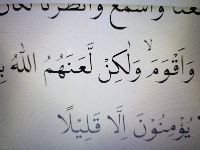 وَاسْمَعْ وَانْظُرْنَا لَكَانَ
وَاَقْوَمَ ۙ وَلٰكِنْ لَّعَنَهُمُ اللّٰهُ
يُؤْمِنُوْنَ اِلَّا قَلِيْلًا